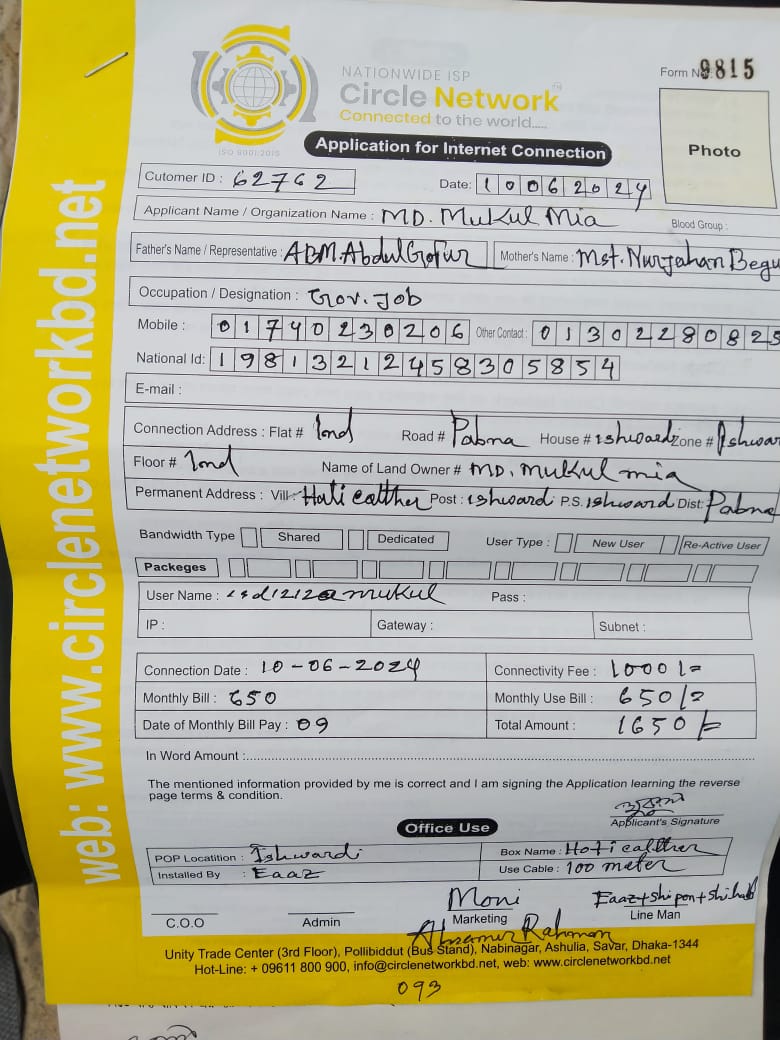 NATIONWIDE ISP
Circle Network
Connected to the world.....
ISO 9001:2015
Form No 9815
Photo
Application for Internet Connection
Cutomer ID : 62762
Date: 10062024
Applicant Name / Organization Name : MD. Mukul Mia Blood Group :
Father's Name / Representative : ABM. Abdul Gofur Mother's Name : Mst. Nurjahan Begu
Occupation / Designation : Gov. Job
Mobile : 01740230206 Other Contact : 01302280825
National Id: 19813212458305854
E-mail :
Connection Address : Flat # Road # Pabna House # ishward Zone # Ishwar
Floor # Name of Land Owner # MD. Mukul mia
Permanent Address : Vill: Hati calther Post : ishward P.S. Ishward Dist: Pabna
Bandwidth Type Shared Dedicated User Type : New User Re-Active User
Packeges
User Name : Pass :
IP : Gateway : Subnet :
Connection Date : 10-06-2024 Connectivity Fee : 1000/=
Monthly Bill : 650 Monthly Use Bill : 650/=
Date of Monthly Bill Pay : 09 Total Amount : 1650/=
In Word Amount :
The mentioned information provided by me is correct and I am signing the Application learning the reverse
page terms & condition.
Applicant's Signature
Office Use
POP Locatition : Ishwardi Box Name : Hoti calther
Installed By : Eaaz Use Cable : 100 meter
Moni Eaaz+Shipon+Shihab
C.O.O Admin Marketing Line Man
Rahman
Unity Trade Center (3rd Floor), Pollibiddut (Bus Stand), Nabinagar, Ashulia, Savar, Dhaka-1344
Hot-Line: + 09611 800 900, info@circlenetworkbd.net, web: www.circlenetworkbd.net
093
web: www.circlenetworkbd.net